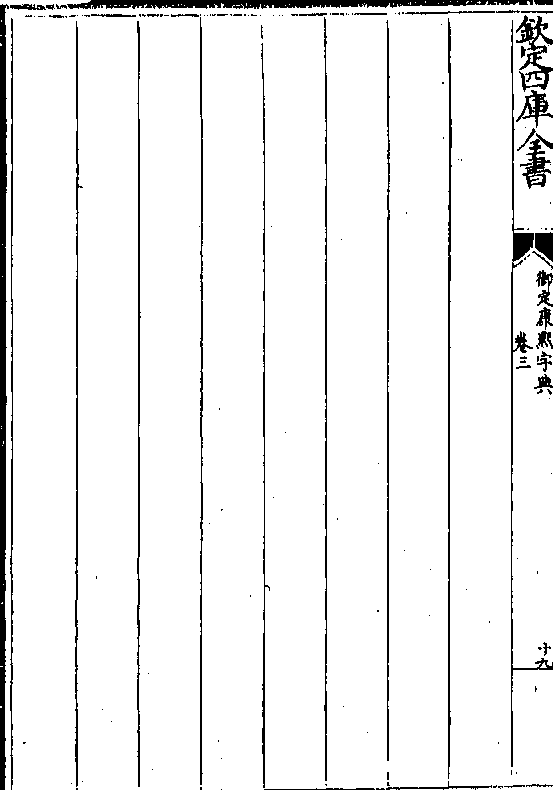 欽定四庫全書
御定康熙字典
卷三
十九